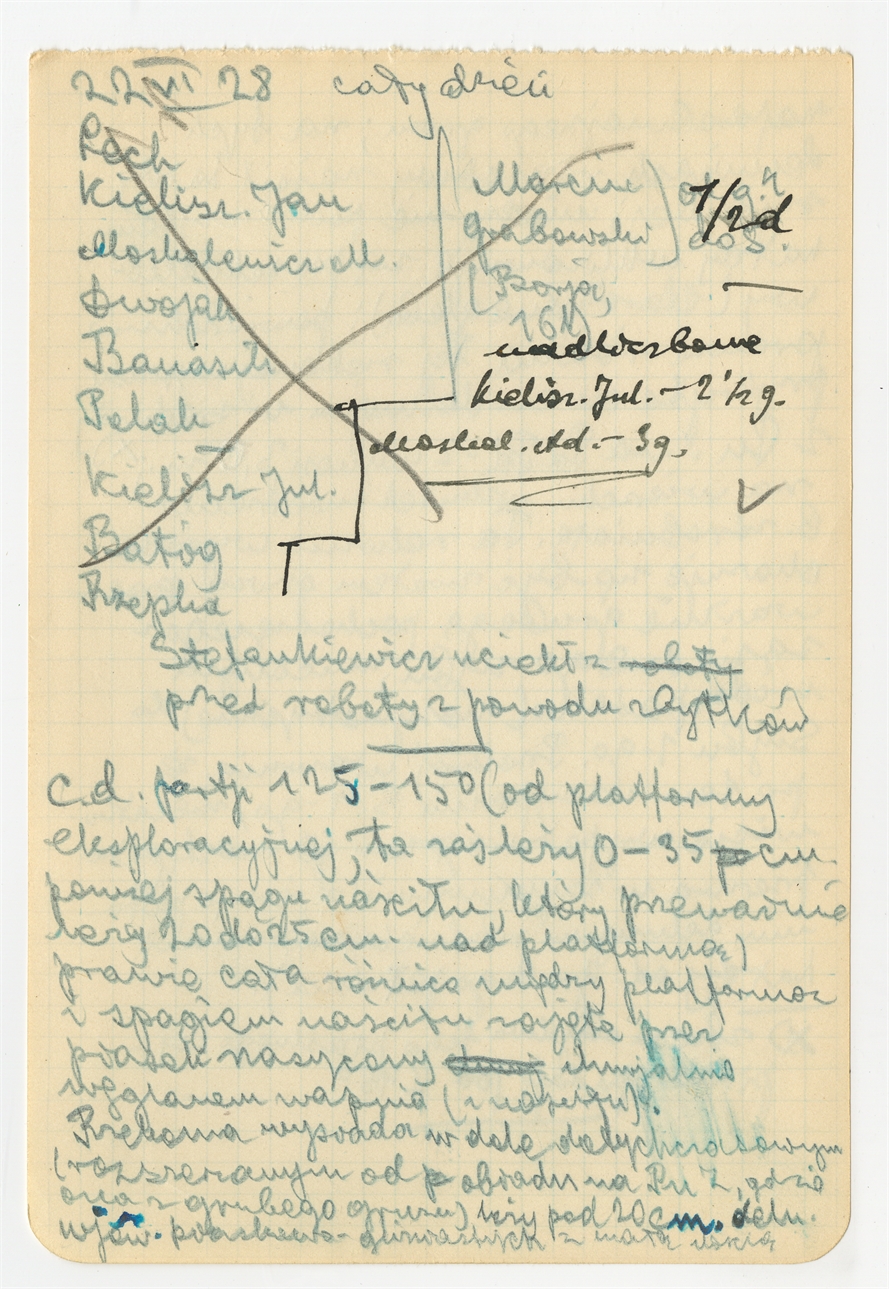 22 VI 28 cały dzień
Lech
Kielisz. Jan
Moskalewicz M.
Dwojak
Banasik
Polak
Kielisz Jul.
Batóg
Rzepka
Marcin
Grabowski
(Borja,
16 l)
od g. 7
1/2 d
nadliczbowe
Kielisz. Jul. – 2 1/2 g.
Moskal. Ad. – 3 g.
Stefankiewicz uciekł z roboty
przed roboty z powodu zbytków
c.d. partji 125–150 (od platformy
eksploracyjnej, ta zaś leży 0–35 cm.
poniżej spągu naścitu, który przeważnie
leży 20 do 25 cm. nad platformą)
prawie cała różnica między platformą
i spągiem naścitu zajęta przez
piasek nasycony iluwjalnie
węglanem wapnia (i naścitu).
Rzekoma wysiada w dole dotychczasowym
(rozszerzanym od obiadu na Pn Z, gdzie
ona z grubego gruzu) leży pod 20 cm. delu-
wjów piaskowo-gliniastych z małą